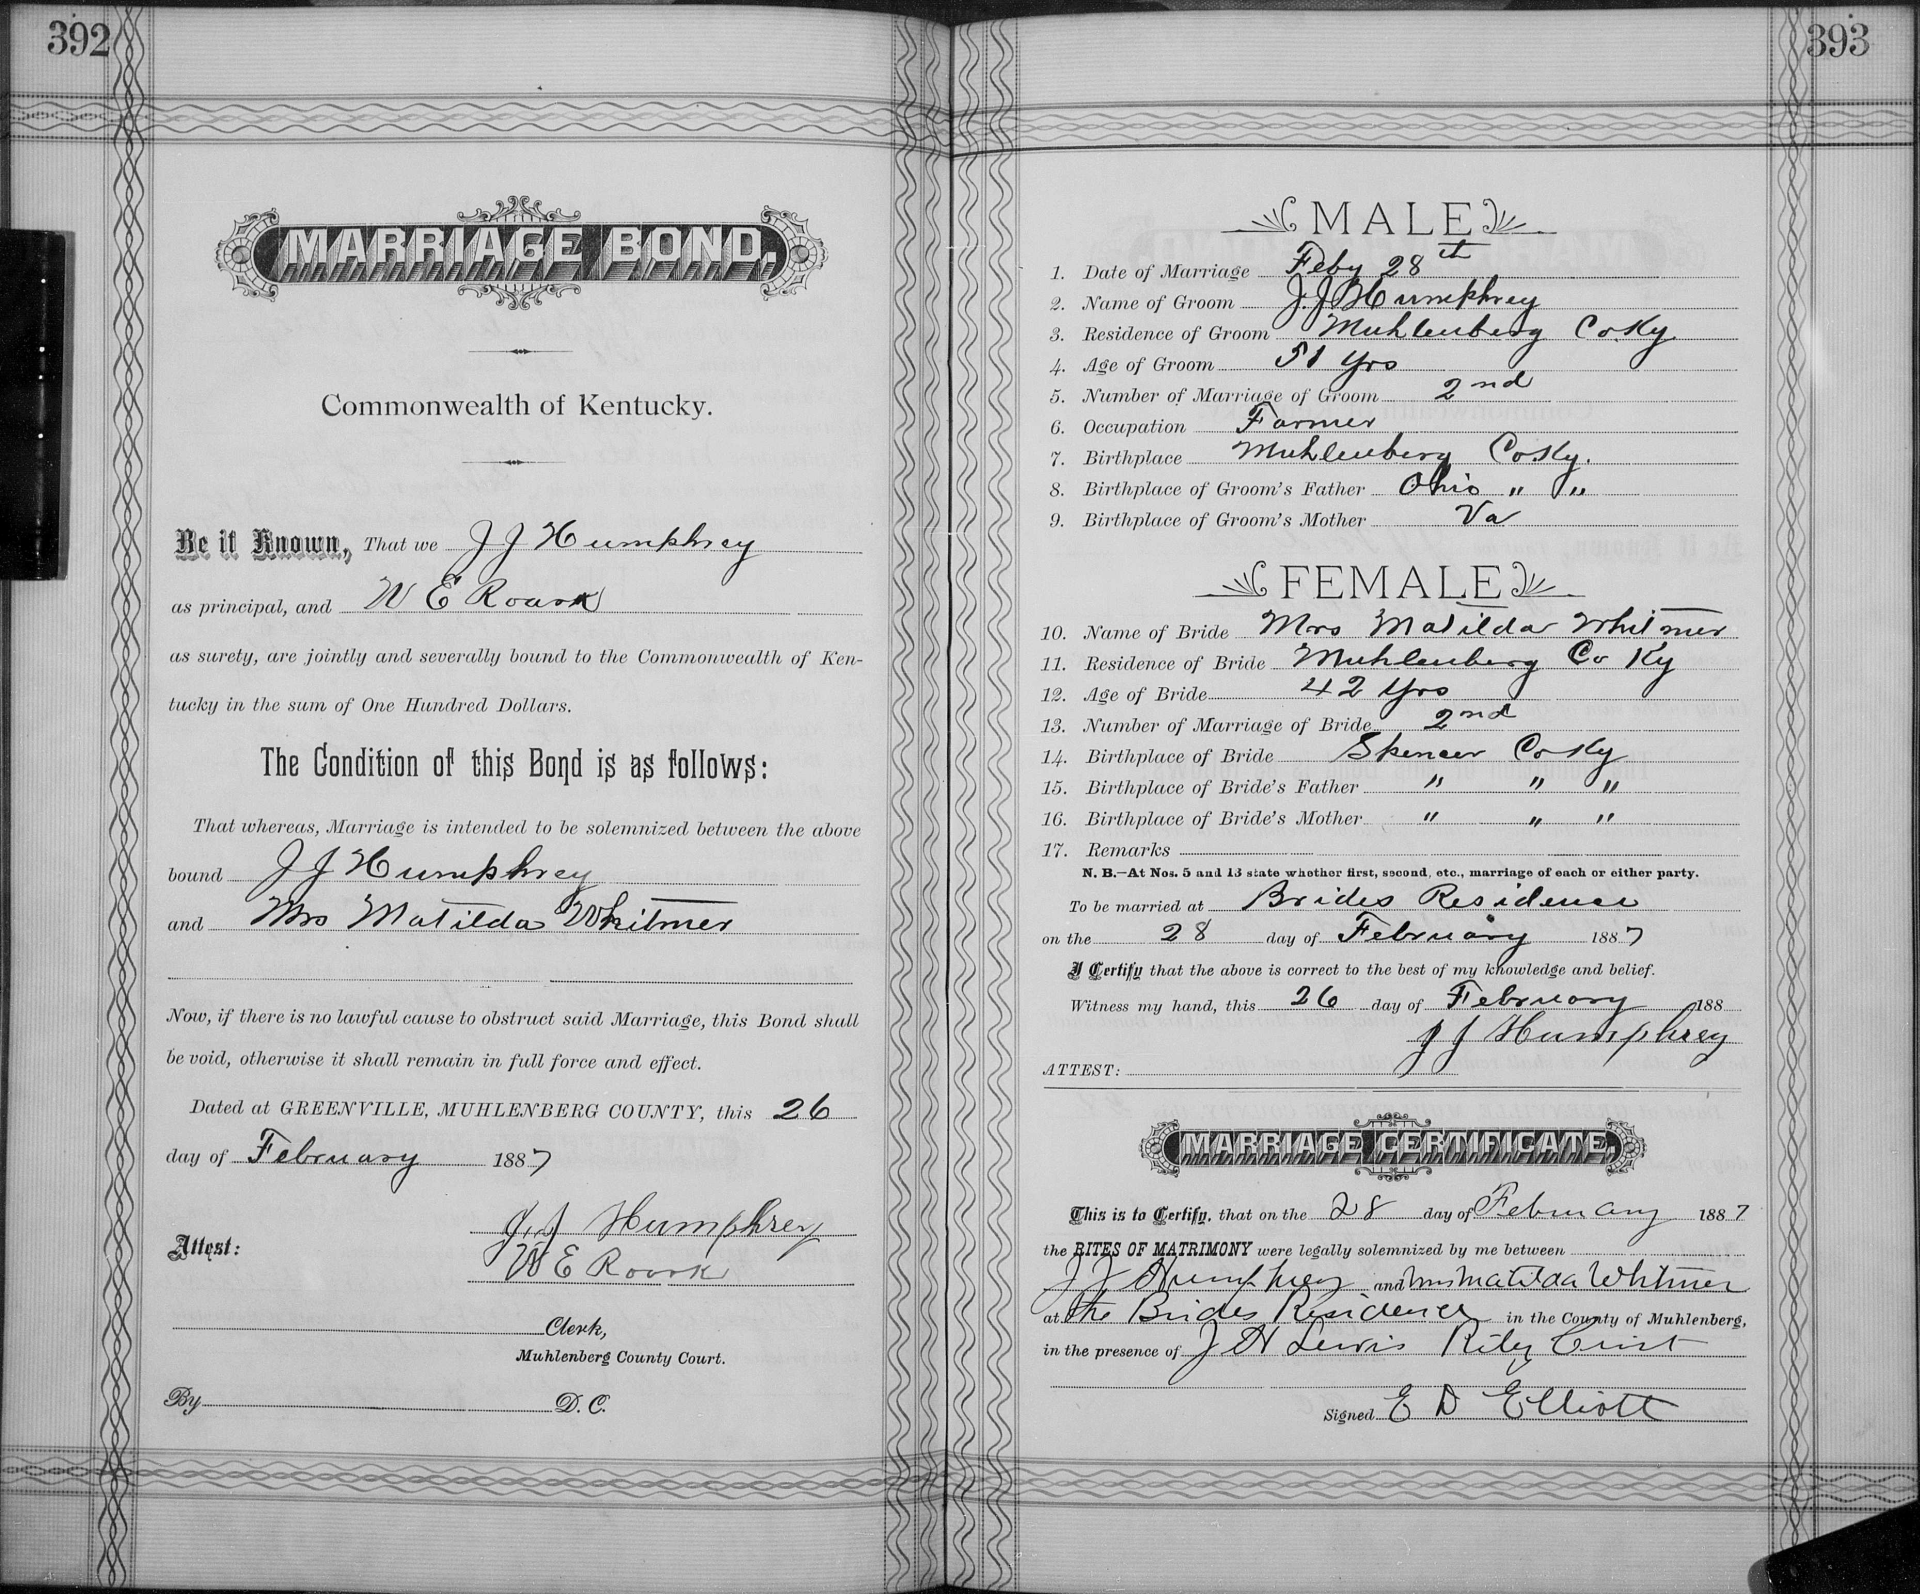 392
MARRIAGE BOND.
Commonwealth of Kentucky.
Be it Known, That we J J Humphrey
as principal, and W E Roark
as surety, are jointly and severally bound to the Commonwealth of Ken-
tucky in the sum of One Hundred Dollars.
The Condition of this Bond is as follows:
That whereas, Marriage is intended to be solemnized between the above
bound J J Humphrey
and Mrs Matilda Whitmer
Now, if there is no lawful cause to obstruct said Marriage, this Bond shall
be void, otherwise it shall remain in full force and effect.
Dated at GREENVILLE, MUHLENBERG COUNTY, this 26
day of February 1887
J. J Humphrey
Attest:
W E Roark
Clerk,
Muhlenberg County Court.
By D. C.
393
MALE
1. Date of Marriage Feby 28th
2. Name of Groom J. J Humphrey
3. Residence of Groom Muhlenberg Co Ky.
4. Age of Groom 51 Yrs
5. Number of Marriage of Groom 2nd
6. Occupation Farmer
7. Birthplace Muhlenberg Co Ky.
8. Birthplace of Groom's Father Ohio " "
9. Birthplace of Groom's Mother Va
FEMALE
10. Name of Bride Mrs Matilda Whitmer
11. Residence of Bride Muhlenberg Co Ky
12. Age of Bride 42 Yrs
13. Number of Marriage of Bride 2nd
14. Birthplace of Bride Spencer Co Ky
15. Birthplace of Bride's Father " " "
16. Birthplace of Bride's Mother " " "
17. Remarks
N. B.—At Nos. 5 and 13 state whether first, second, etc., marriage of each or either party.
To be married at Brides Residence
on the 28 day of February 1887
I Certify that the above is correct to the best of my knowledge and belief.
Witness my hand, this 26 day of February 188
J J Humphrey
ATTEST:
MARRIAGE CERTIFICATE.
This is to Certify, that on the 28 day of February 1887
the RITES OF MATRIMONY were legally solemnized by me between
J J Humphrey and Mrs Matilda Whitmer
at the Brides Residence in the County of Muhlenberg,
in the presence of J H Lewis Riley
Signed E D Elliott